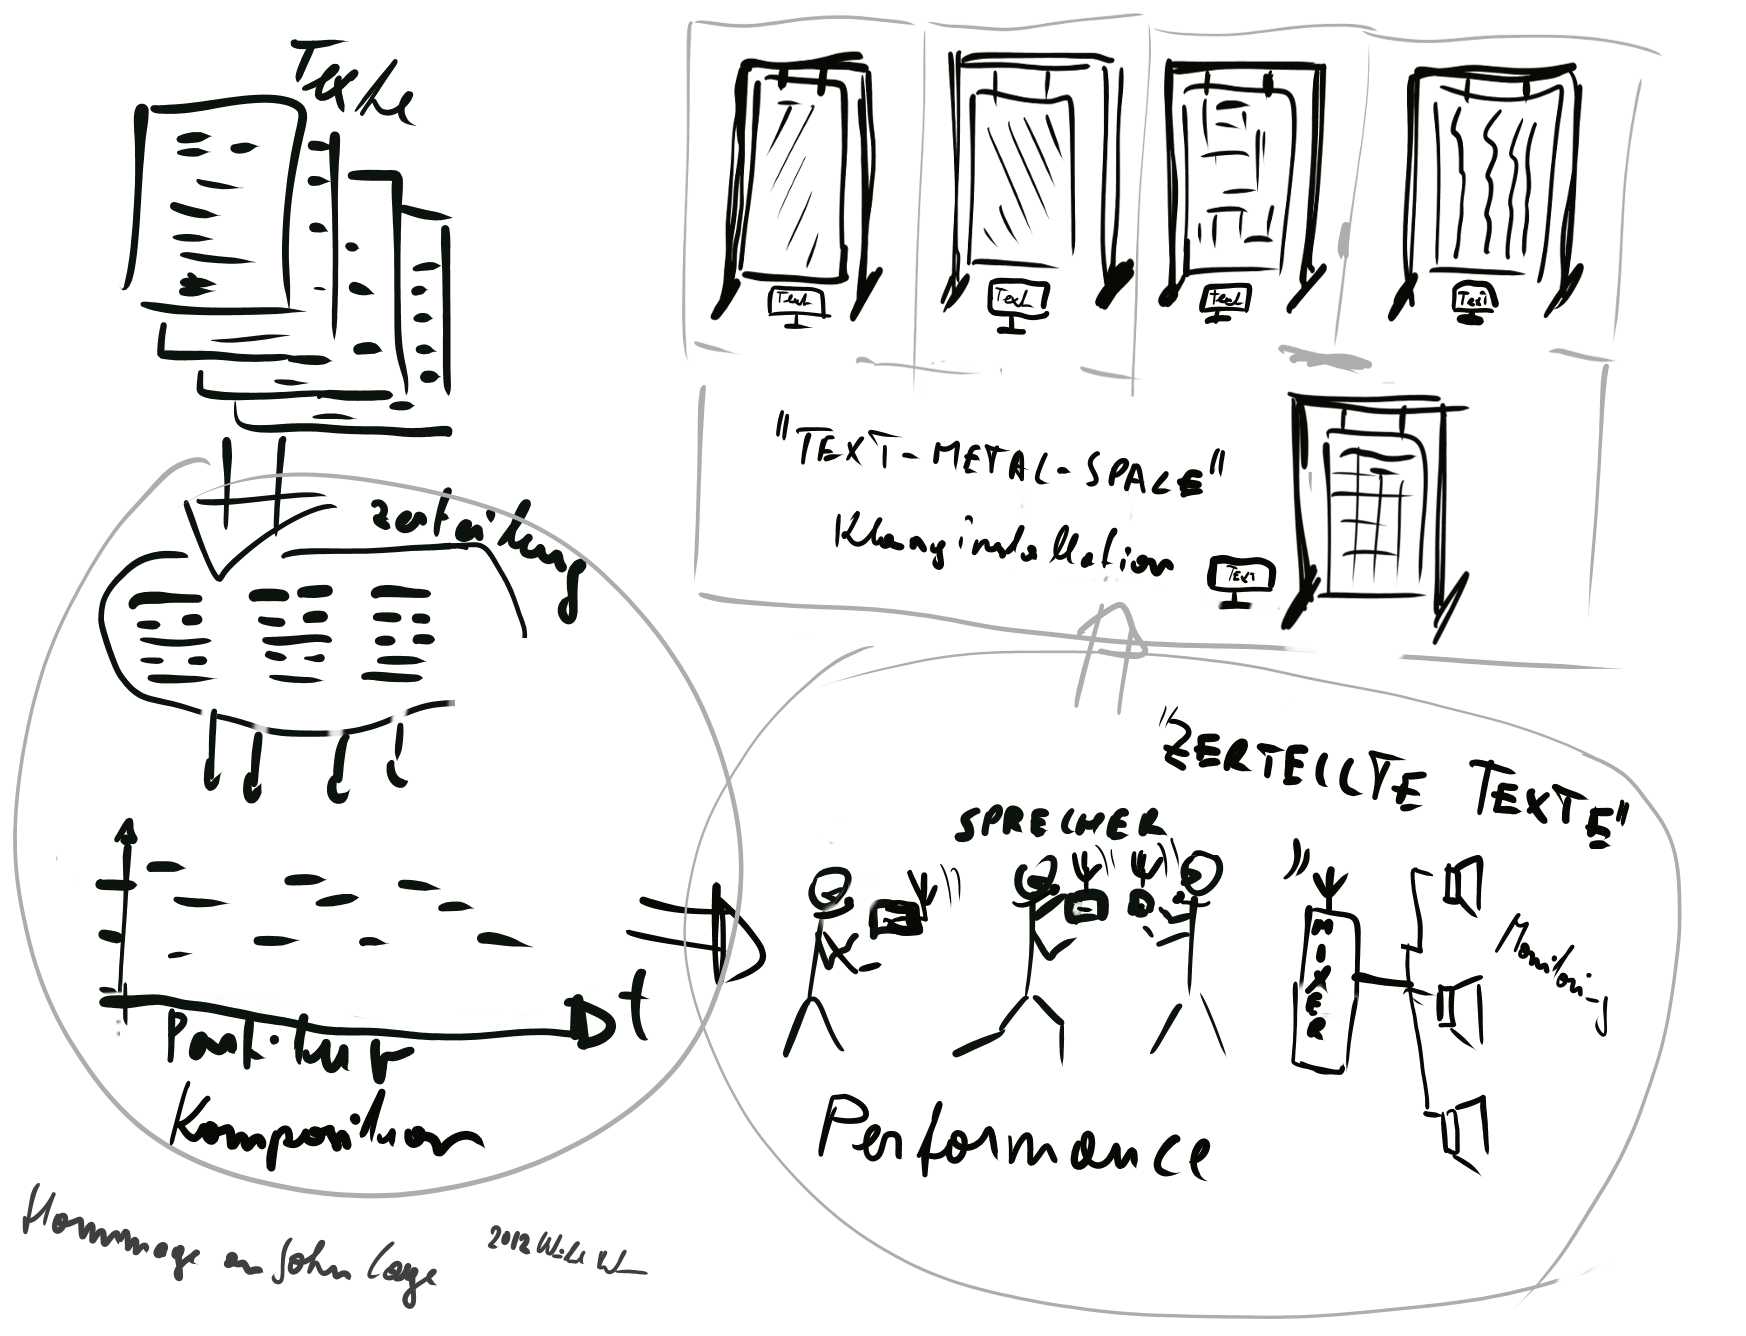 Texte
Zerteilung
t
Partitur
Komposition
Hommage an John Cage
2012
Text
Text
Text
Text
"TEXT-METAL-SPACE"
Klanginstallation
Text
"ZERTEILTE TEXTE"
SPRECHER
MIXER
Monitoring
Performance